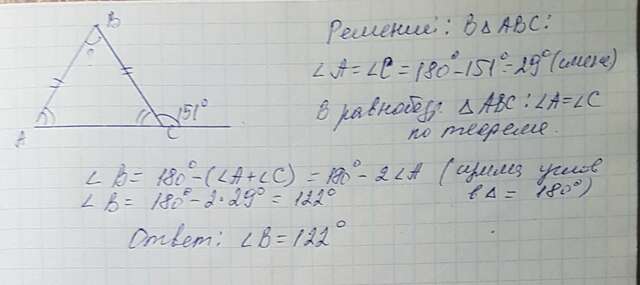 B
A
C
151°
Решение: В △ ABC:
∠A=∠C=180°-151°=29° (смеж)
В равнобедр. △ABC: ∠A=∠C
по теореме.
∠B= 180°-(∠A+∠C) = 180°- 2∠A (сумма углов
в △ = 180°)
∠B= 180°-2·29° = 122°
Ответ: ∠B=122°